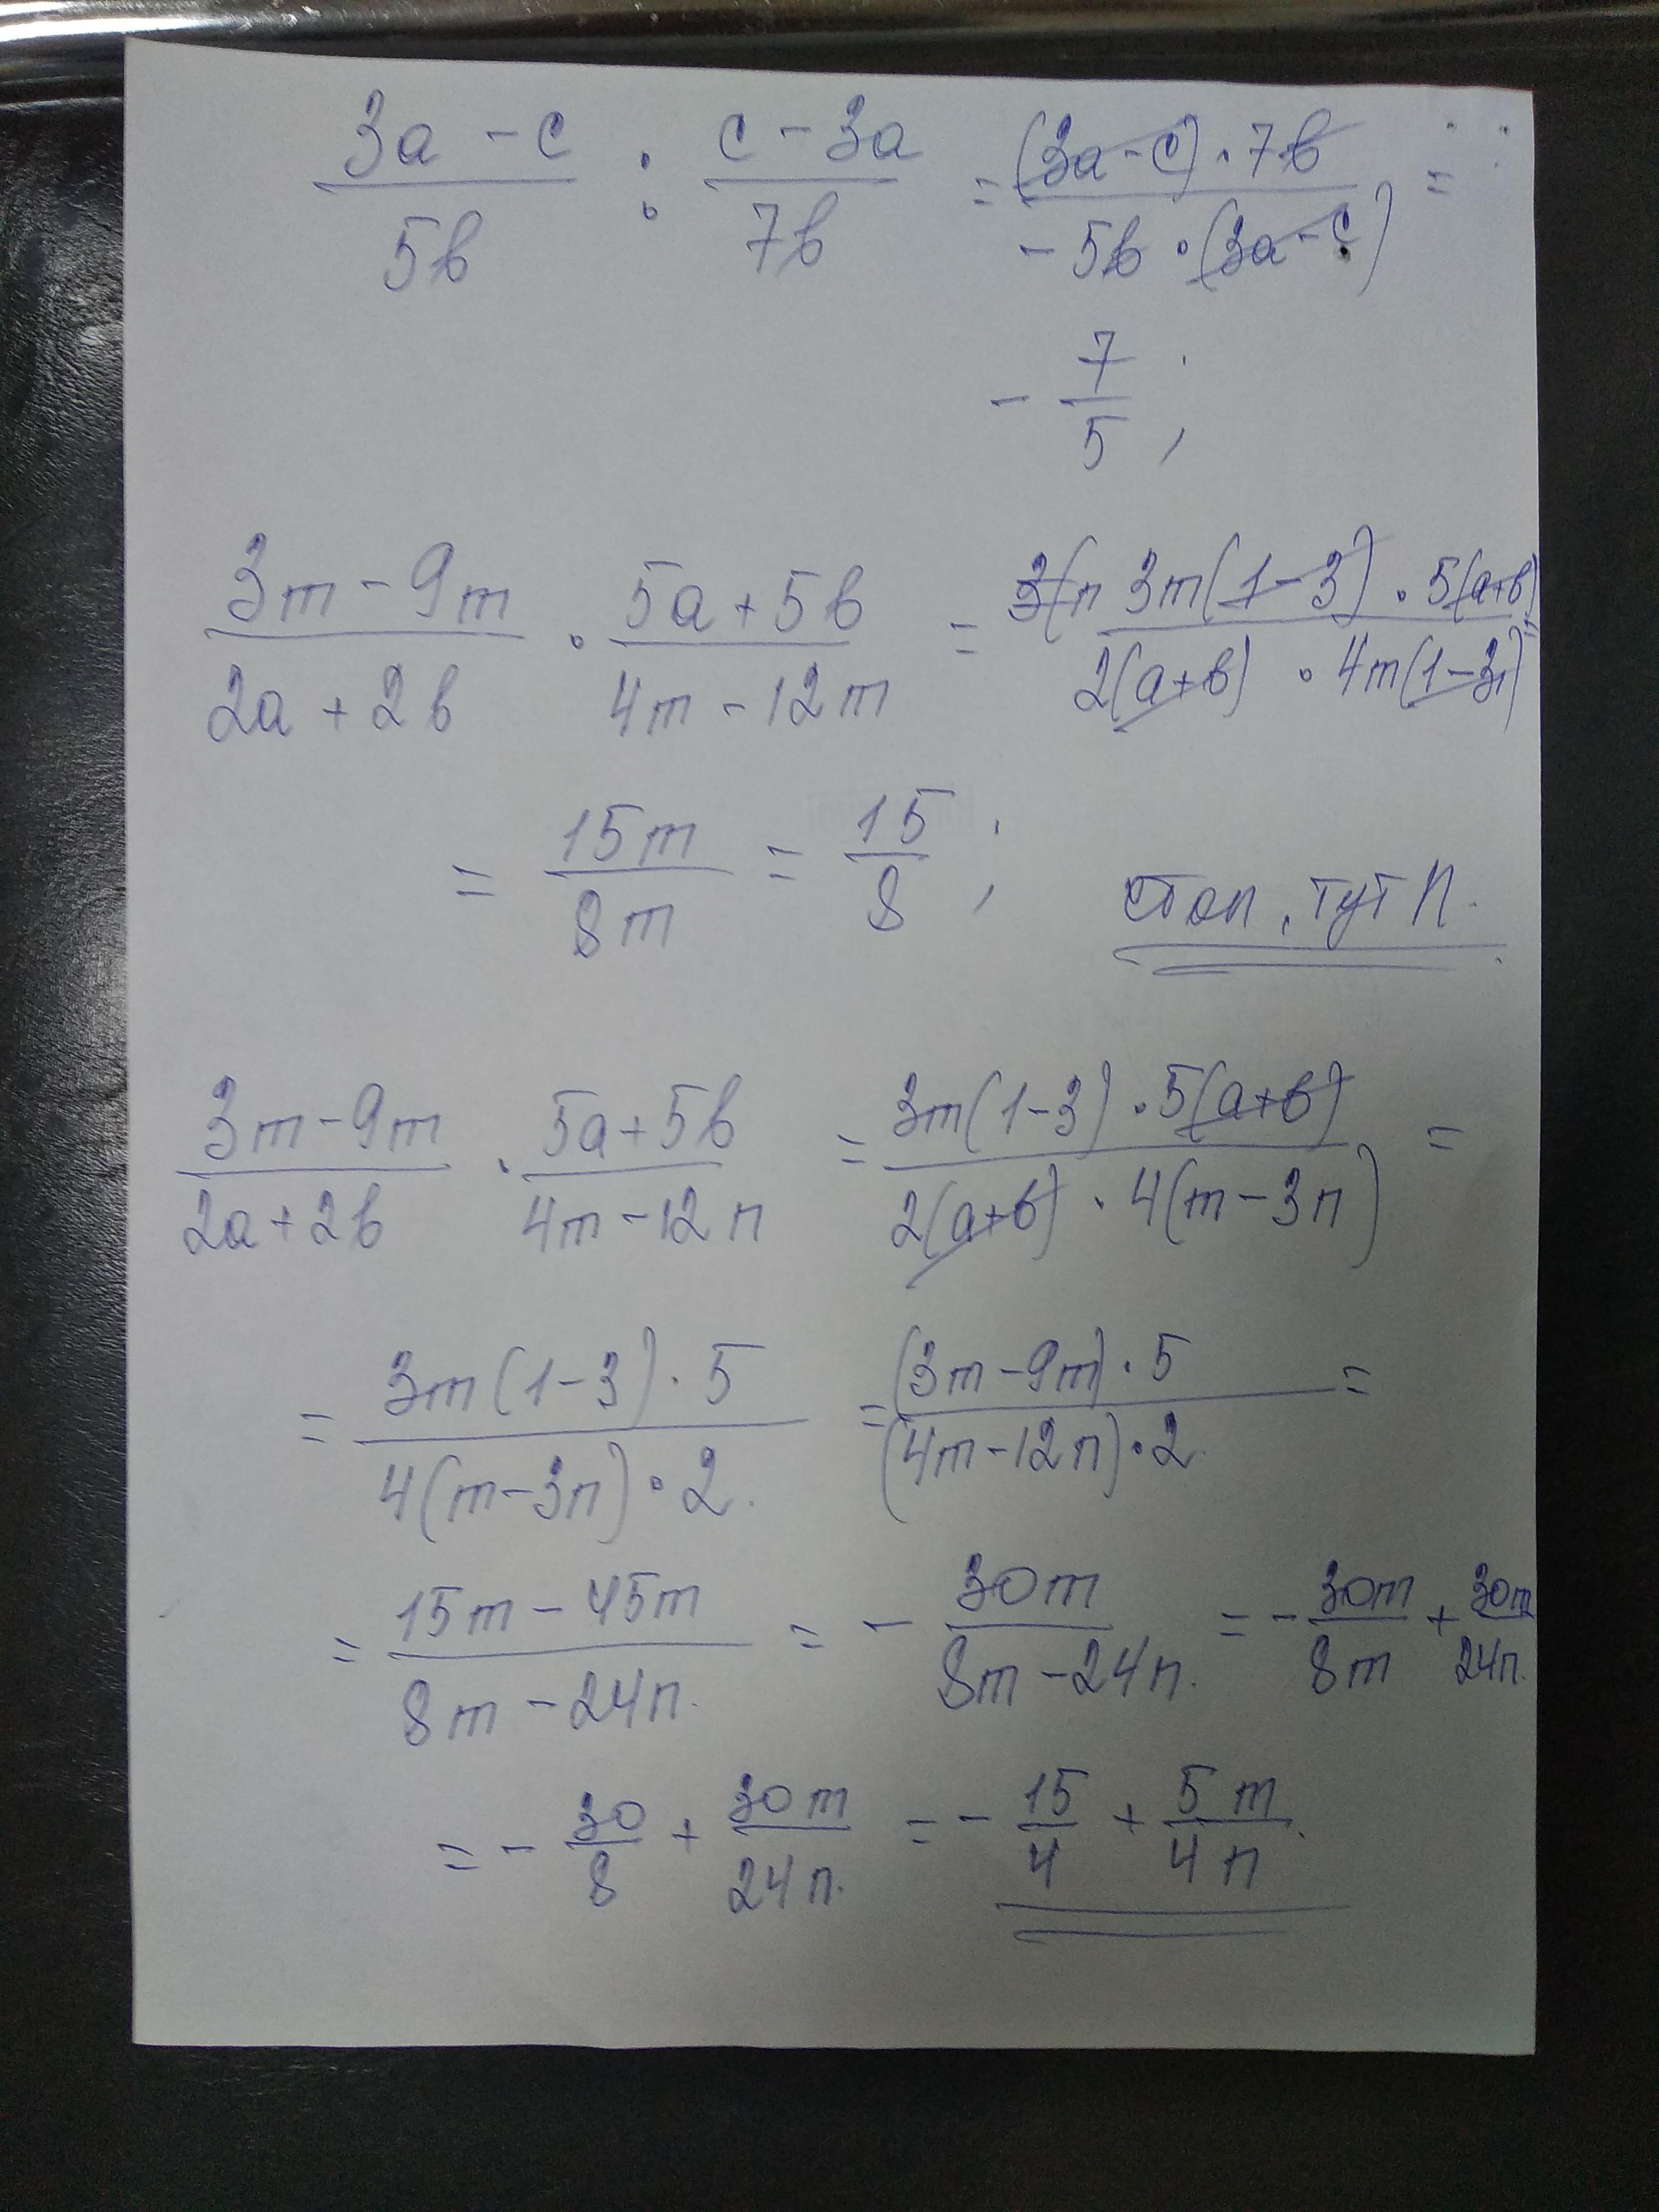 (3a - c)/(5b) : (c - 3a)/(7b) = ((3a - c) · 7b)/(-5b · (3a - c)) =
- 7/5 ;
(3m - 9m)/(2a + 2b) · (5a + 5b)/(4m - 12m) = 3(n (3m(1 - 3) · 5(a+b))/(2(a+b) · 4m(1 - 3)) =
= 15m/8m = 15/8 ;
стоп, тут n.
(3m - 9m)/(2a + 2b) · (5a + 5b)/(4m - 12n) = (3m(1-3) · 5(a+b))/(2(a+b) · 4(m - 3n)) =
= (3m(1-3) · 5)/(4(m-3n) · 2) = ((3m - 9m) · 5)/((4m - 12n) · 2) =
= (15m - 45m)/(8m - 24n) = - 30m/(8m - 24n) = - 30m/8m + 30m/24n
= - 30/8 + 30m/24n = - 15/4 + 5m/4n